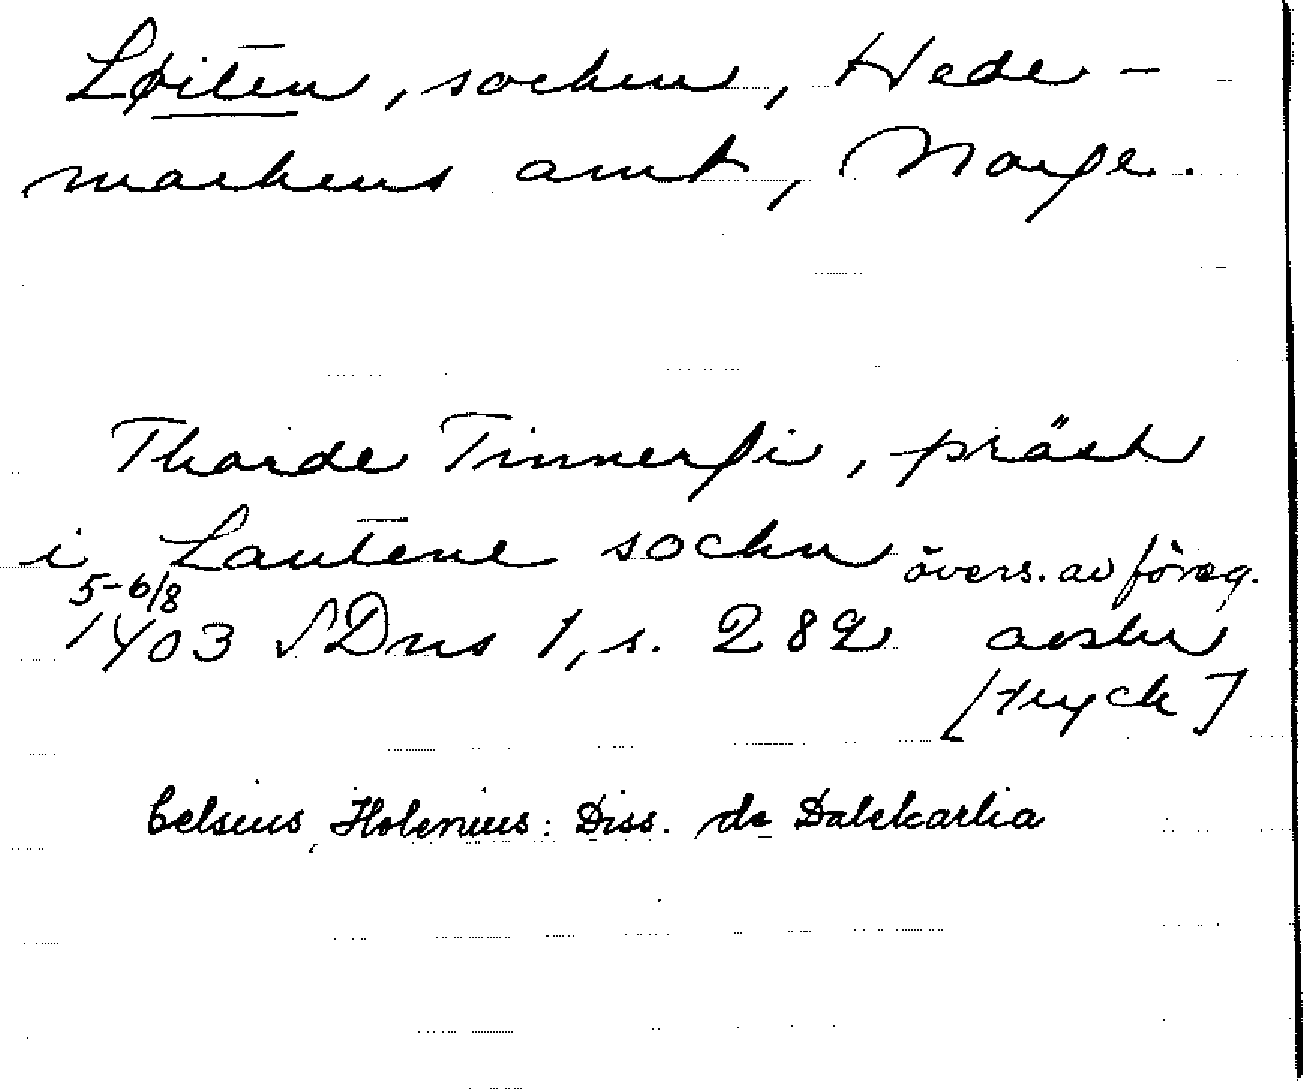 Løiten, socken, Hede-
markens amt, Norge.
Thorde Tinnerfi, präst
i Lautene sockn övers. av föreg.
5-6/8
1403 SDns 1, s. 282 avskr
[tryck]
Celsius, Holenius: Diss. de Dalekarlia